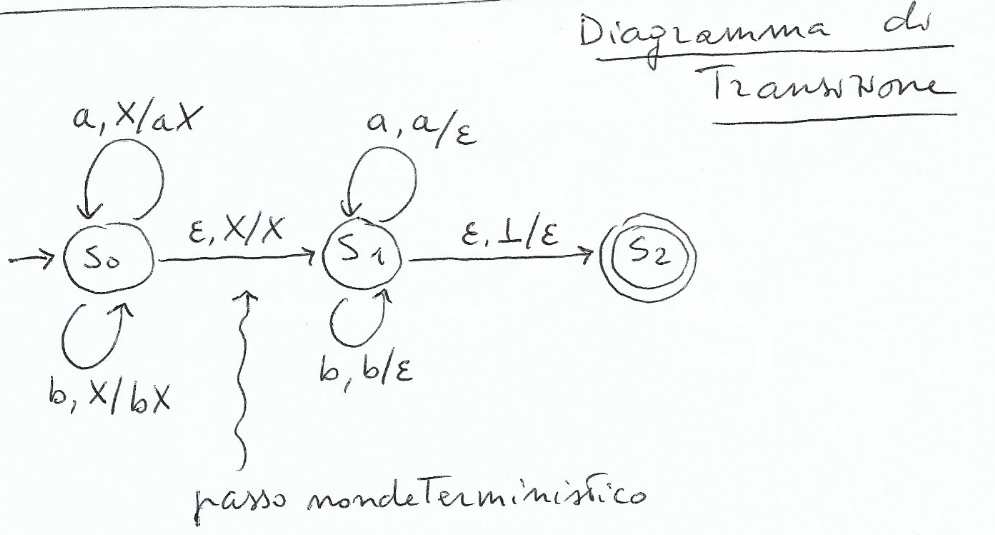 Diagramma di
Transizione
a, X/aX
a, a/ε
ε, X/X
ε, ⊥/ε
S0
S1
S2
b, X/bX
b, b/ε
passo nondeterministico